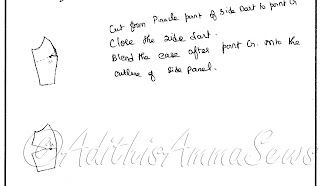 Cut from Pinacle point of side Dart to point G
Close the side dart.
Blend the ease after point G. onto the
outline of side panel.
©AdithisAmmaSews